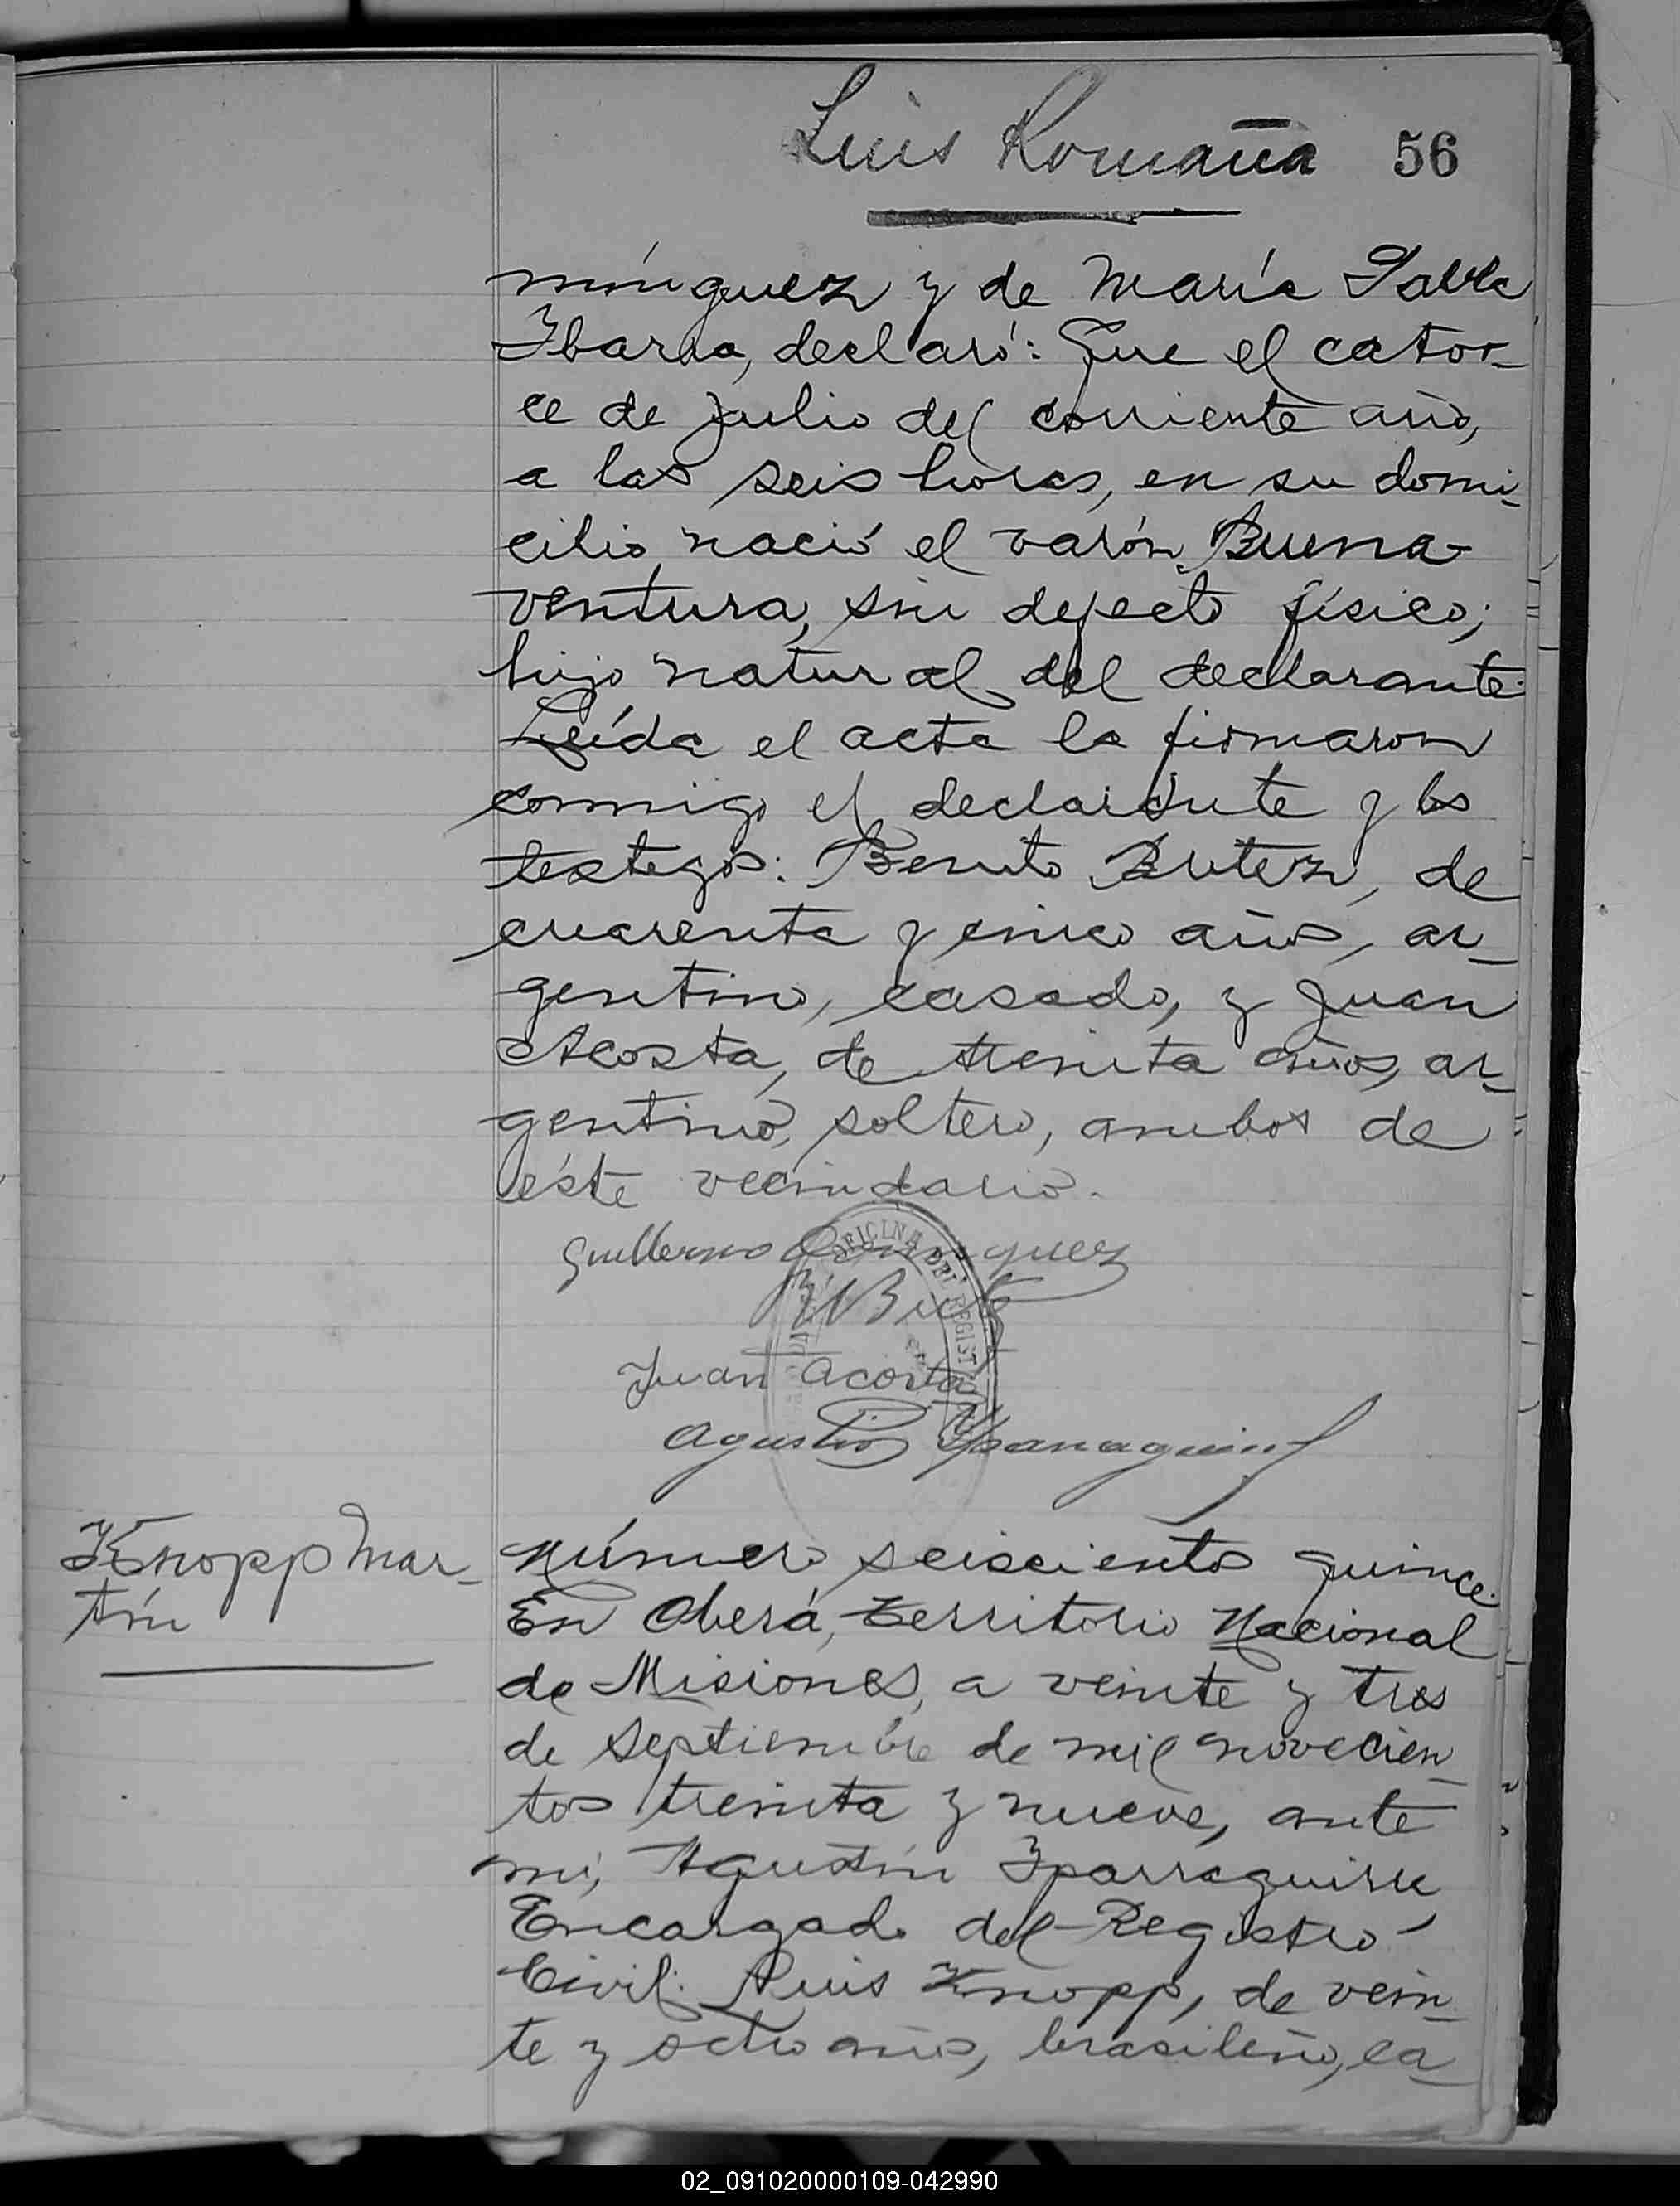 Luis Romaña 56
mínguez y de María Pabla
Ibarra, declaró: Que el cator-
ce de julio del corriente año,
a las seis horas, en su domi-
cilio, nació el varón Buena-
ventura, sin defecto físico;
hijo natural del declarante.
Leída el acta la firmaron
conmigo el declarante y los
testigos: Benito Brítez, de
cuarenta y cinco años, ar-
gentino, casado, y Juan
Acosta, de treinta años, ar-
gentino, soltero, ambos de
éste vecindario.
Guillermo Dominguez
Juan Acosta
Agustin Yparraguirre
OFICINA DEL REGISTRO
Knopp Mar-
tín
Número seiscientos quince.
En Oberá, Territorio Nacional
de Misiones, a veinte y tres
de Septiembre de mil novecien-
tos treinta y nueve, ante
mí, Agustín Iparraguirre,
Encargado del Registro
Civil: Luis Knopp, de vein-
te y ocho años, brasileño, ca-
02_091020000109-042990